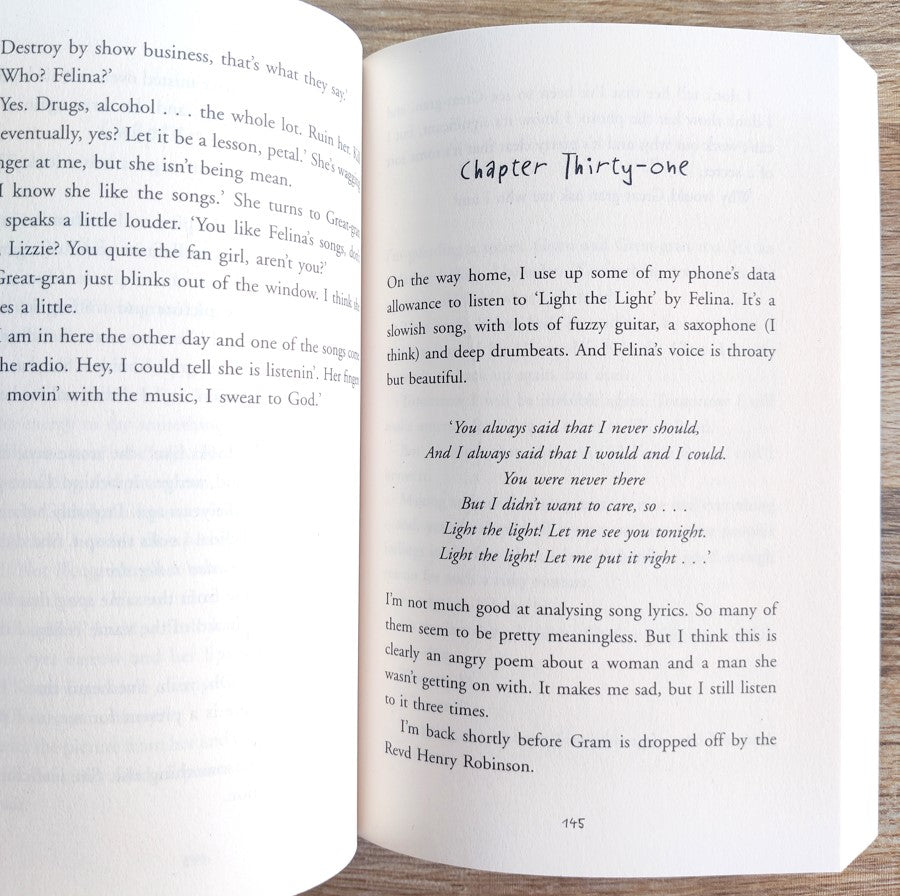 Destroy by show business, that's what they say.'
'Who? Felina?'
Yes. Drugs, alcohol . . . the whole lot. Ruin her. Kill
eventually, yes? Let it be a lesson, petal.' She's wagging
nger at me, but she isn't being mean.
I know she like the songs.' She turns to Great-gran
speaks a little louder. 'You like Felina's songs, don't
Lizzie? You quite the fan girl, aren't you?'
Great-gran just blinks out of the window. I think she
es a little.
I am in here the other day and one of the songs come
he radio. Hey, I could tell she is listenin'. Her finger
movin' with the music, I swear to God.'
Chapter Thirty-one
On the way home, I use up some of my phone's data
allowance to listen to 'Light the Light' by Felina. It's a
slowish song, with lots of fuzzy guitar, a saxophone (I
think) and deep drumbeats. And Felina's voice is throaty
but beautiful.
'You always said that I never should,
And I always said that I would and I could.
You were never there
But I didn't want to care, so . . .
Light the light! Let me see you tonight.
Light the light! Let me put it right . . .'
I'm not much good at analysing song lyrics. So many of
them seem to be pretty meaningless. But I think this is
clearly an angry poem about a woman and a man she
wasn't getting on with. It makes me sad, but I still listen
to it three times.
I'm back shortly before Gram is dropped off by the
Revd Henry Robinson.
145